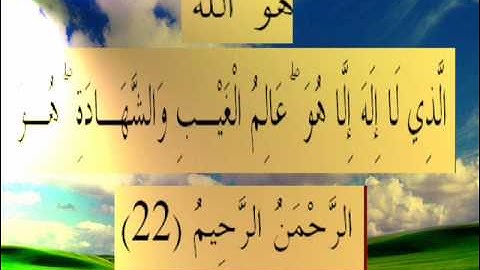 هُوَ اللَّهُ
الَّذِي لَا إِلَهَ إِلَّا هُوَ ۖ عَالِمُ الْغَيْبِ وَالشَّهَادَةِ ۖ هُوَ
الرَّحْمَنُ الرَّحِيمُ (22)